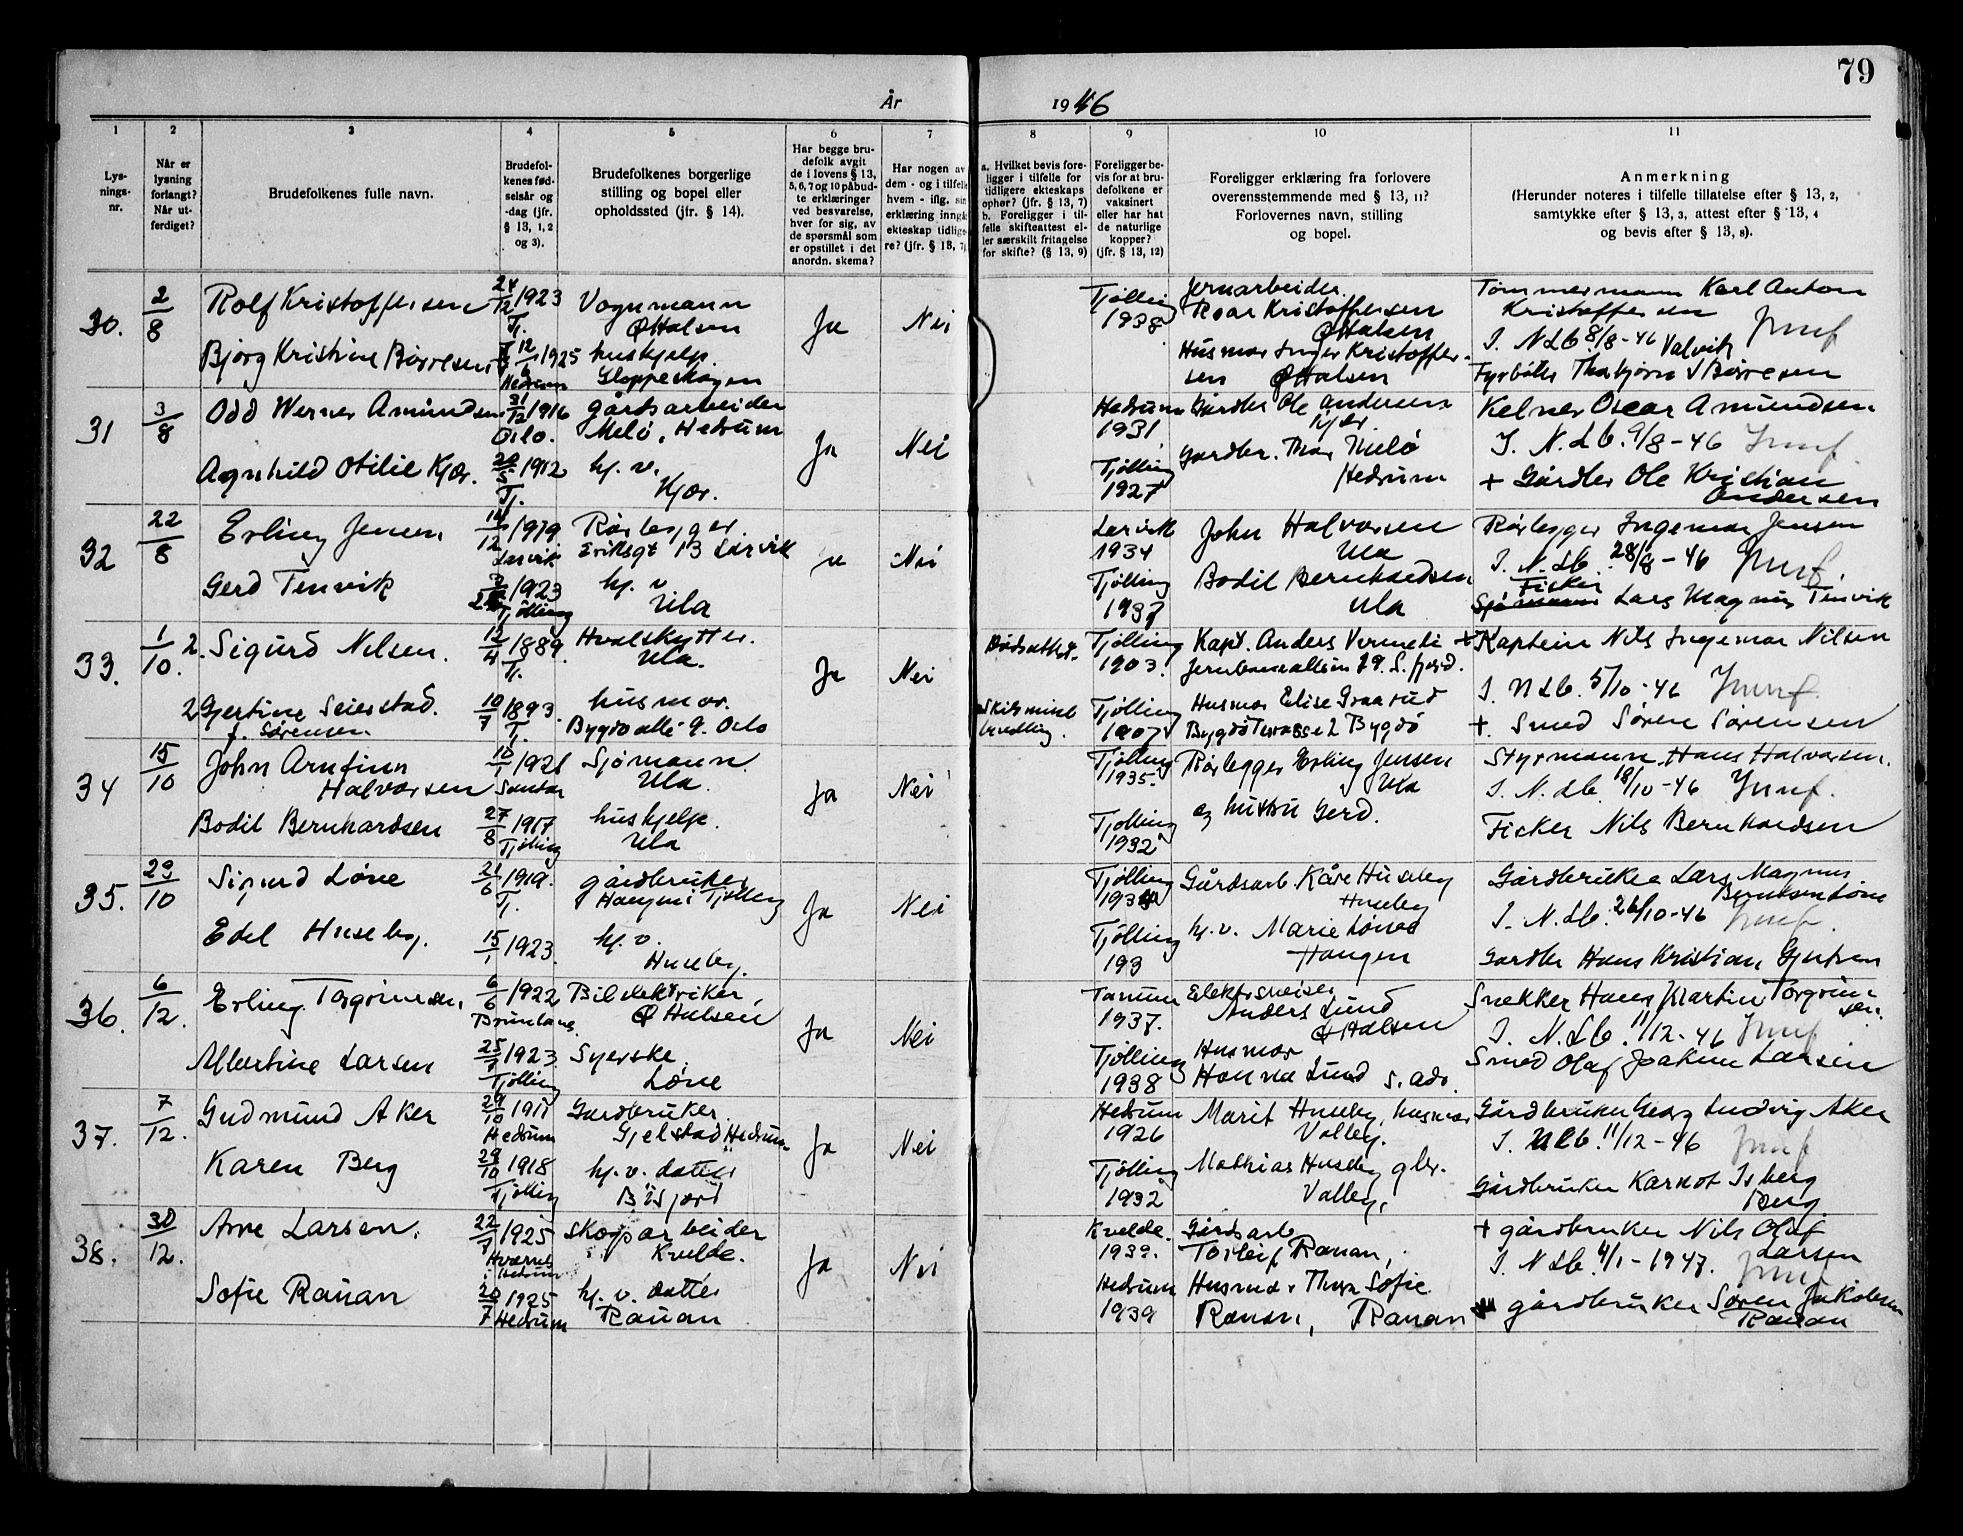 79
År
1946
1
2
3
4
5
6
7
8
9
10
11
Lys-
nings-
nr.
Når er
lysning
forlangt?
Når ut-
ferdiget?
Brudefolkenes fulle navn.
Brudefol-
kenes fød-
selsår og
-dag (jfr.
§ 13, 1, 2
og 3).
Brudefolkenes borgerlige
stilling og bopel eller
opholdssted (jfr. § 14).
Har begge bru-
defolk avgit
de i lovens § 13,
5, 6, 7 og 10 påbud-
te erklæringer
ved besvarelse,
hver for sig, av
de spørsmål som
er opstillet i det
anordn. skema?
Har nogen av
dem - og i tilfelle
hvem - iflg. sin
erklæring inngåt
ekteskap tidlige-
re? (jfr. § 13, 7)
a. Hvilket bevis fore-
ligger i tilfelle for
tidligere ekteskaps
ophør? (jfr. § 13, 7)
b. Foreligger i til-
felle skifteattest el-
ler særskilt fritagelse
for skifte? (§ 13, 9)
Foreligger be-
vis for at bru-
defolkene er
vaksinert
eller har hat
de naturlige
kopper?
(jfr. § 13, 12)
Foreligger erklæring fra forlovere
overensstemmende med § 13, 11?
Forlovernes navn, stilling
og bopel.
Anmerkning
(Herunder noteres i tilfelle tillatelse efter § 13, 2,
samtykke efter § 13, 3, attest efter § 13, 4
og bevis efter § 13, 8).
30.
2/8
Rolf Kristoffersen
24/12 1923
Tj.
Vognmann
Ø Halsen
Ja
Nei
Tjølling
1938
Jernarbeider
Roar Kristoffersen
Ø Halsen
Tømmermann Karl Anton
Kristoffersen
J. N Lb 8/8-46
Bjørg Kristine Børresen
1925
Hedrum
hushjelp.
Gloppeskogen
Husmor Inger Kristoffer-
sen Ø Halsen
Fyrbøter Thorbjørn Børresen
31
3/8
Odd Werner Amundsen
31/12 1916
Oslo.
gårdsarbeider
Melø, Hedrum
Ja
Nei
Hedrum
1931
Gårdbr Ole Andersen
Kjær
Kelner Oscar Amundsen
J. N. Lb. 9/8-46
Agnhild Otilie Kjær.
1912
Tj.
hj. v.
Kjær.
Tjølling
1927
Gardbr. Thor Melø
Hedrum
+ Gårdbr Ole Kristian
Andersen
32
22/8
Erling Jensen
1919
Larvik
Rørlegger
Eriksgt 13 Larvik
Ja
Nei
Larvik
1934
John Halvorsen
Ula
Rørlegger Ingemar Jensen
J. N. Lb. 28/8-46
Gerd Tenvik
1923
Tjølling
hj. v
Ula
Tjølling
1937
Bodil Bernhardsen
Ula
Fisker
Sjømann Lars Magnus Tenvik
33.
1/10.
2. Sigurd Nilsen.
12/4 1889.
Tj.
Hvalskytter.
Ula.
Ja
Nei
Dødsattest.
Tjølling
1903.
Kapt. Anders Vermeli
+ Kaptein Nils Ingemar Nilsen
J. N Lb. 5/10-46
2 Gjertine Seierstad.
f. Sørensen
10/7 1893.
Tj.
husmor.
Bygdø allé 9. Oslo
Tjølling
1907
Husmor Elise Graarud
Bygdø Terrasse 2 Bygdø
+ Smed Søren Sørensen
34
15/10
John Arnfinn
Halvorsen
10/1 1921
Sandar
Sjømann
Ula.
Ja
Nei
Tjølling
1935.
Rørlegger Erling Jensen
Ula
Styrmann Hans Halvorsen.
J. N. Lb. 18/10-46
Bodil Bernhardsen
27/8 1917
Tjølling
hushjelp.
Ula
Tjølling
1932
og hustru Gerd.
Fisker Nils Bernhardsen
35.
29/10
Sigurd Løve
21/6 1919.
Tj.
gårdbruker
Haugen i Tjølling
Ja
Nei
Tjølling
Gårdsarb. Kåre Huseby
Huseby
Gårdbruker Lars Magnus
Berntsen Løve
J. N. Lb. 26/10-46
Edel Huseby.
15/1 1923.
hj. v.
Huseby.
Tjølling
193
hj. v. Marie Løve
Haugen
Gardbr Hans Kristian Gjertsen
36.
6/12.
Erling Torgrimsen
6/6 1922
Brunlanes
Bilelektriker,
Ø Halsen
Ja
Nei
Tanum
1937.
Elektrosveiser
Anders Lund
Ø Halsen
Snekker Hans Martin Torgrim-
sen.
J. N. Lb. 11/12-46
Martine Larsen
1923
Tjølling
Syerske.
Løve
Tjølling
1938
Husmor
Hanna Lund s. ads.
Smed Olaf Joakim Larsen
37.
7/12.
Gudmund Aker
29/10 1911
Hedrum
Gardbruker
Gjelstad Hedrum
Ja
Nei
Hedrum
1926
Marit Huseby, husmor
Valley.
Gårdbruker Georg Ludvig Aker
J. N Lb. 11/12-46
Karen Berg
29/10 1918
Tjølling
hj. v. datter
Tjølling
1932
Mathias Huseby gbr.
Valley,
Gårdbruker Karnot Isberg
Berg.
38.
30/12.
Arne Larsen.
22/7 1925
Hvarnes
i Hedrum
skogsarbeider
Kvelde.
Ja
Nei
Kvelde.
1939.
Gårdsarb.
Torleif Rauan,
+ gårdbruker Nils Olaf
Larsen
J. N Lb. 4/1-1947.
Sofie Rauan
20/7 1925
Hedrum
hj. v. datter
Rauan
Hedrum
1939
Husmor Thora Sofie
Rauan, Rauan
gårdbruker Søren Jakobsen
Rauan